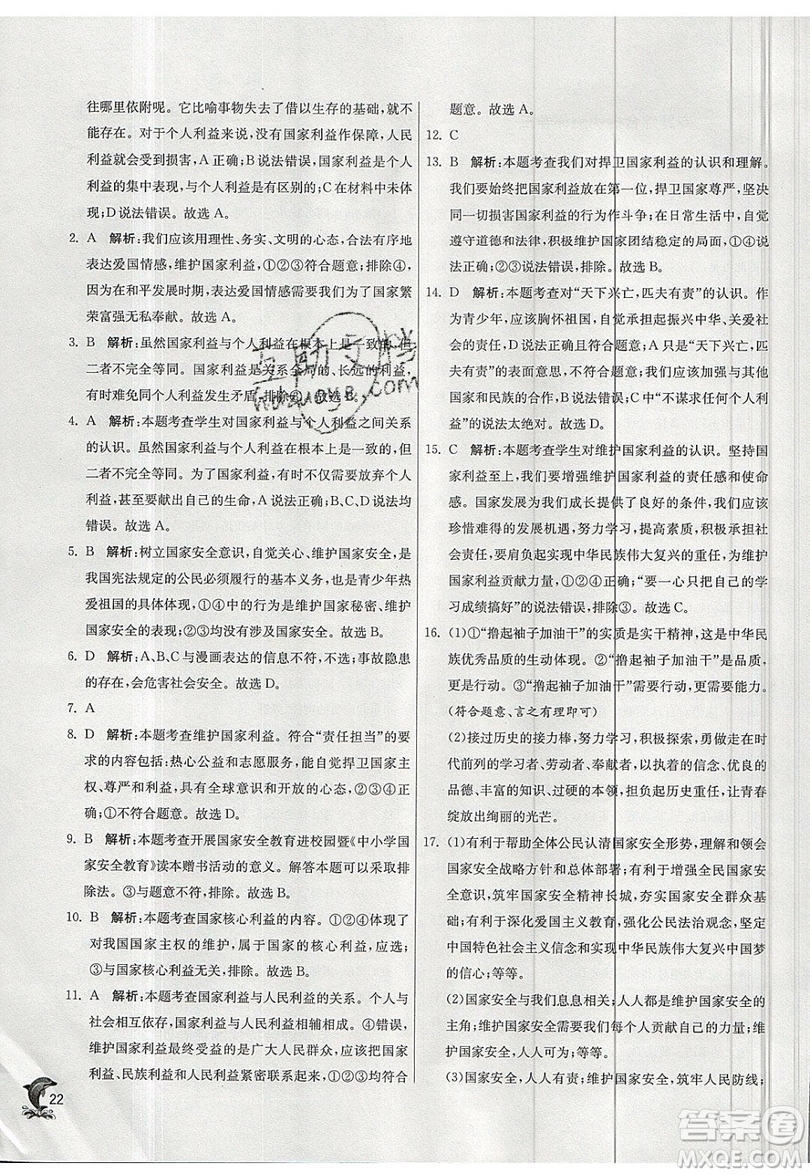 往哪里依附呢。它比喻事物失去了借以生存的基础,就不
能存在。对于个人利益来说,没有国家利益作保障,人民
利益就会受到损害,A正确;B说法错误,国家利益是个人
利益的集中表现,与个人利益是有区别的;C在材料中未体
现;D说法错误。故选A。
2. A 解析:我们应该用理性、务实、文明的心态,合法有序地
表达爱国情感,维护国家利益,①②③符合题意;排除④,
因为在和平发展时期,表达爱国情感需要我们为国家繁
荣富强无私奉献。故选A。
3. B 解析:虽然国家利益与个人利益在根本上是一致的,但
二者不完全等同。国家利益是全局的、长远的利益,
有时难免同个人利益发生矛盾,排除②,故选B。
4. A 解析:本题考查学生对国家利益与个人利益之间关系
的认识。虽然国家利益与个人利益在根本上是一致的,但
二者不完全等同。为了国家利益,在必要时需要放弃个人
利益,甚至要献出自己的生命,A说法正确;B、C、D说法均
错误。故选A。
5. B 解析:树立国家安全意识,自觉关心、维护国家安全,是
我国宪法规定的公民必须履行的基本义务,也是青少年热
爱祖国的具体体现,①④中的行为是维护国家秘密、维护
国家安全的表现;②③均没有涉及国家安全。故选B。
6. D 解析:A、B、C与漫画表达的信息不符,不选;事故隐患
的存在,会危害社会安全。故选D。
7. A
8. D 解析:本题考查维护国家利益。符合“责任担当”的要
求的内容包括:热心公益和志愿服务,能自觉捍卫国家主
权、尊严和利益,具有全球意识和开放的心态,②③④符合
题意;①不符合题意。故选D。
9. B 解析:本题考查开展国家安全教育进校园暨《中小学国
家安全教育》读本赠书活动的意义。解答本题可以采取排
除法。②与题意不符,排除。故选B。
10. B 解析:本题考查国家核心利益的内容。①②④体现了
对我国国家主权的维护,属于国家的核心利益,应选;
③与国家核心利益无关,排除。故选B。
11. A 解析:本题考查国家利益与人民利益的关系。个人与
社会相互依存,国家利益与人民利益相辅相成。④错误,
国家利益最终受益的是广大人民群众,应该把国家利
益、民族利益和人民利益紧密联系起来,①②③符合
题意。故选A。
12. C
13. B 解析:本题考查我们对捍卫国家利益的认识和理解。
我们要始终把国家利益放在第一位,捍卫国家尊严,坚决
同一切损害国家利益的行为作斗争;在日常生活中,自觉
遵守道德和法律,积极维护国家团结稳定的局面,①④正
确;②③的说法错误,排除。故选B。
14. D 解析:本题考查对“天下兴亡,匹夫有责”的认识。作
为青少年,应该胸怀祖国,自觉承担起振兴中华、奉献社
会的责任,D正确且符合题意;A只是“天下兴亡,匹
夫有责”的表面意思,不符合题意;B是错误的行为,不符
合“天下兴亡,匹夫有责”的要求;C中“不谋求任何个人利
益”的说法太绝对。故选D。
15. C 解析:本题考查学生对维护国家利益的认识。坚持国
家利益至上,我们要增强维护国家利益的责任感和使命
感。国家发展为我们成长提供了良好的条件,我们应该
珍惜难得的发展机遇,努力学习,掌握本领,努力承担社
会责任,要肩负起实现中华民族伟大复兴的重任,为维护
国家利益贡献力量,①②④正确;③“要一心只把自己的学
习成绩搞好”的说法错误,排除。故选C。
16. (1)①“撸起袖子加油干”的实质是实干精神,这是中华民
族优秀品质的生动体现。②“撸起袖子加油干”是品质,
更是能力。③“撸起袖子加油干”需要信心,更需行动。
(符合题意、言之有理即可)
(2)接过历史的接力棒,努力学习,积极探索,勇做走在时
代前列的学习者、劳动者、奉献者,以执着的信念、优良的
品德、丰富的知识、过硬的本领、奋进的精神状态,让青春
绽放出绚丽的光芒。
17. (1)有利于帮助全体公民认清国家安全形势,理解和领会
国家安全战略方针和总体部署;有利于增强全民国家安
全意识,筑牢国家安全人民防线和精神长城,夯实国家安
全的社会基础;有利于深化爱国主义教育,强化公民法治观念,坚定
中国特色社会主义信念和实现中华民族伟大复兴中国梦
的信心;等等。
(2)国家安全与我们息息相关,人人都是维护国家安全的
主角;维护国家安全,需要我们每个人贡献自己的力量;
维护国家安全,人人可为;等等。
(3)国家安全,人人有责;维护国家安全,筑牢人民防线;
22
答案圈
MXQE.COM